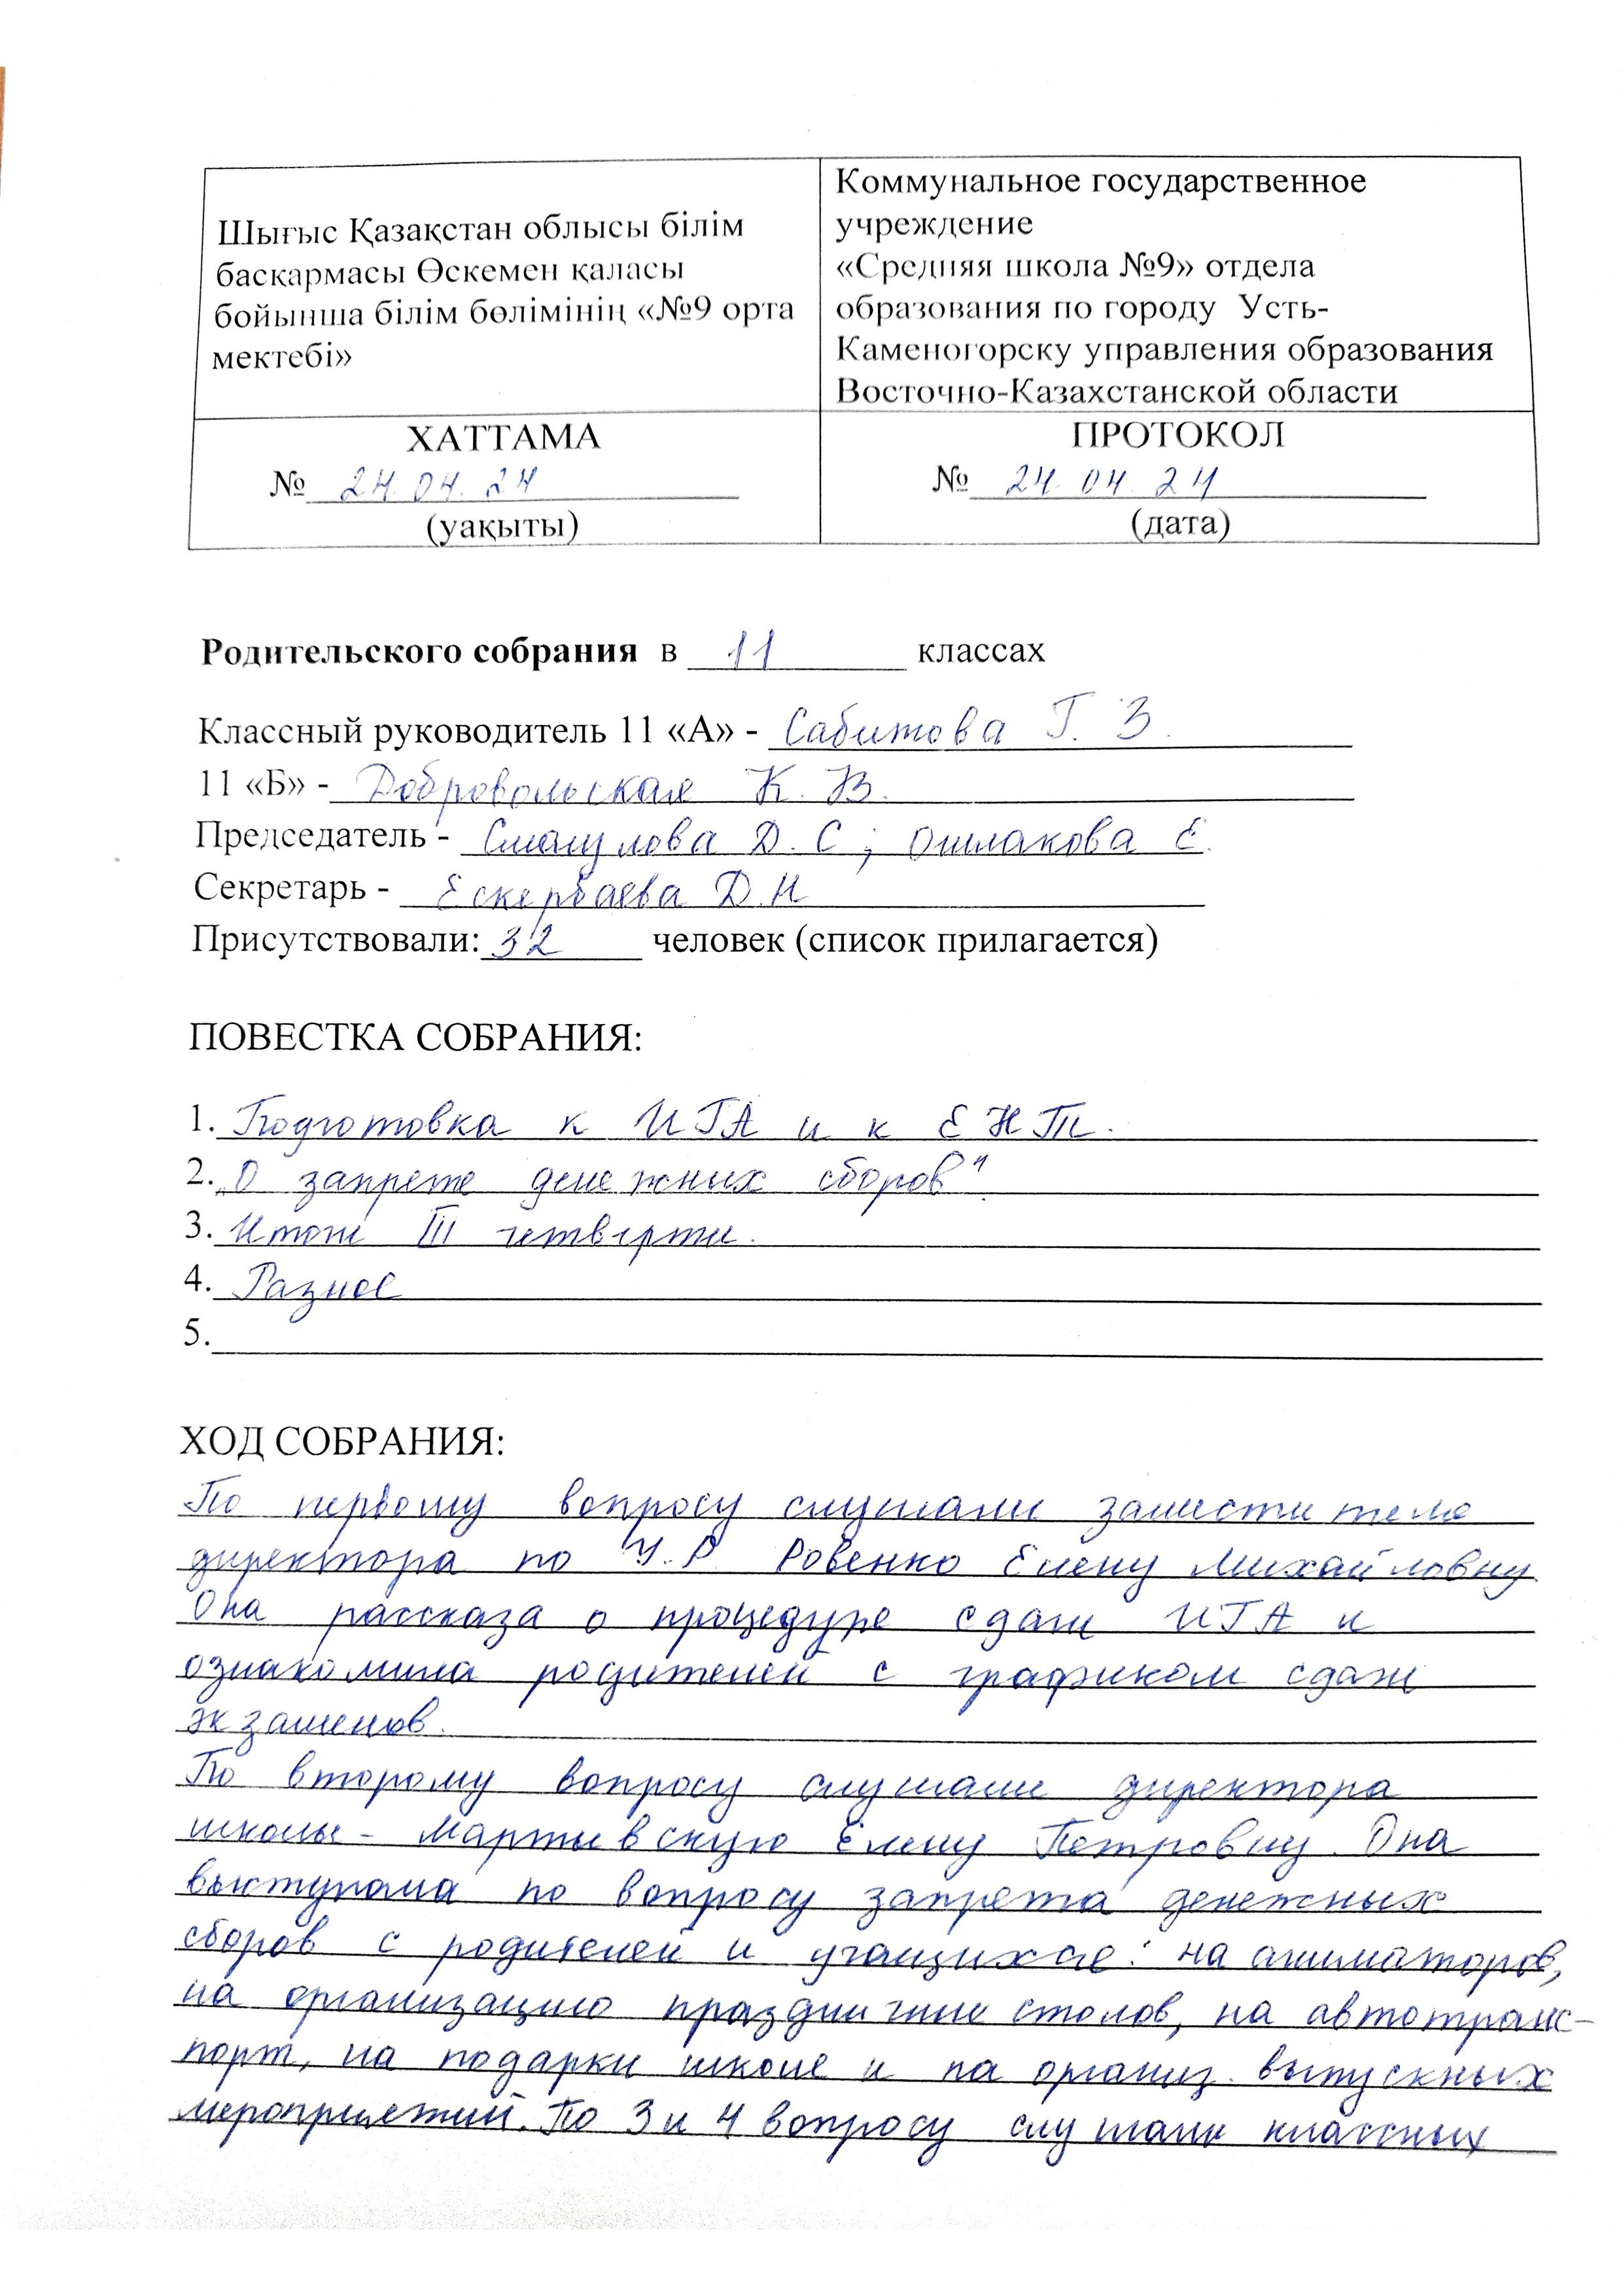 Шығыс Қазақстан облысы білім
басқармасы Өскемен қаласы
бойынша білім бөлімінің «№9 орта
мектебі»
Коммунальное государственное
учреждение
«Средняя школа №9» отдела
образования по городу Усть-
Каменогорску управления образования
Восточно-Казахстанской области
ХАТТАМА
№ 24.04.24
(уақыты)
ПРОТОКОЛ
№ 24.04.24
(дата)
Родительского собрания в 11 классах
Классный руководитель 11 «А» - Сабитова Г. З.
11 «Б» - Добровольская К. В.
Председатель - Смагулова Д. С; Ошлакова Е.
Секретарь - Ескербаева Д. Н
Присутствовали: 32 человек (список прилагается)
ПОВЕСТКА СОБРАНИЯ:
1. Подготовка к ИГА и к ЕНТ.
2. „О запрете денежных сборов"
3. Итоги III четверти.
4. Разное
5.
ХОД СОБРАНИЯ:
По первому вопросу слушали заместителя
директора по У.Р Ровенко Елену Михайловну.
Она рассказа о процедуре сдачи ИГА и
ознакомила родителей с графиком сдачи
экзаменов.
По второму вопросу слушали директора
школы - Елену Петровну. Она
выступала по вопросу запрета денежных
сборов с родителей и учащихся: на аниматоров,
на организацию праздничные столов, на автотранс-
порт, на подарки школе и на организ. выпускных
мероприятий. По 3 и 4 вопросу слушали классных